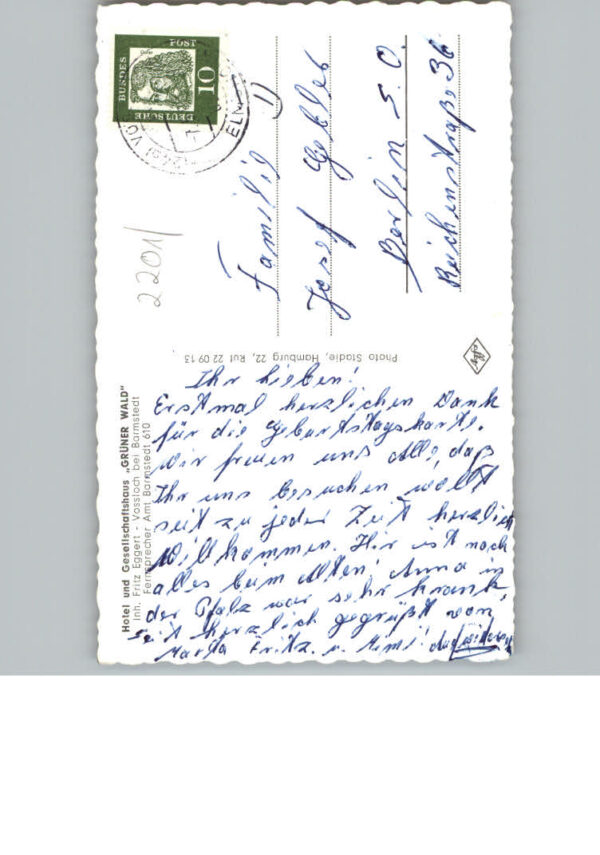 Hotel und Gesellschaftshaus „GRÜNER WALD"
Inh. Fritz Eggert - Vossloch bei Barmstedt
Fernsprecher Amt Barmstedt 610
Ihr Lieben!
Erstmal herzlichen Dank
für die Geburtstagskarte.
Wir freuen uns Alle, daß
Ihr uns besuchen wollt
seit zu jeder Zeit herzlich
Willkommen. Hir ist noch
alles beim Alten! Anna in
der Pfalz war sehr krank,
seit herzlich gegrüßt von,
Marta Fritz. u. Mimi!
Photo Stadie, Hamburg 22, Ruf 22 09 13
DEUTSCHE
BUNDES
POST
10
2201/
Familie
Josef
Berlin S.O.
36